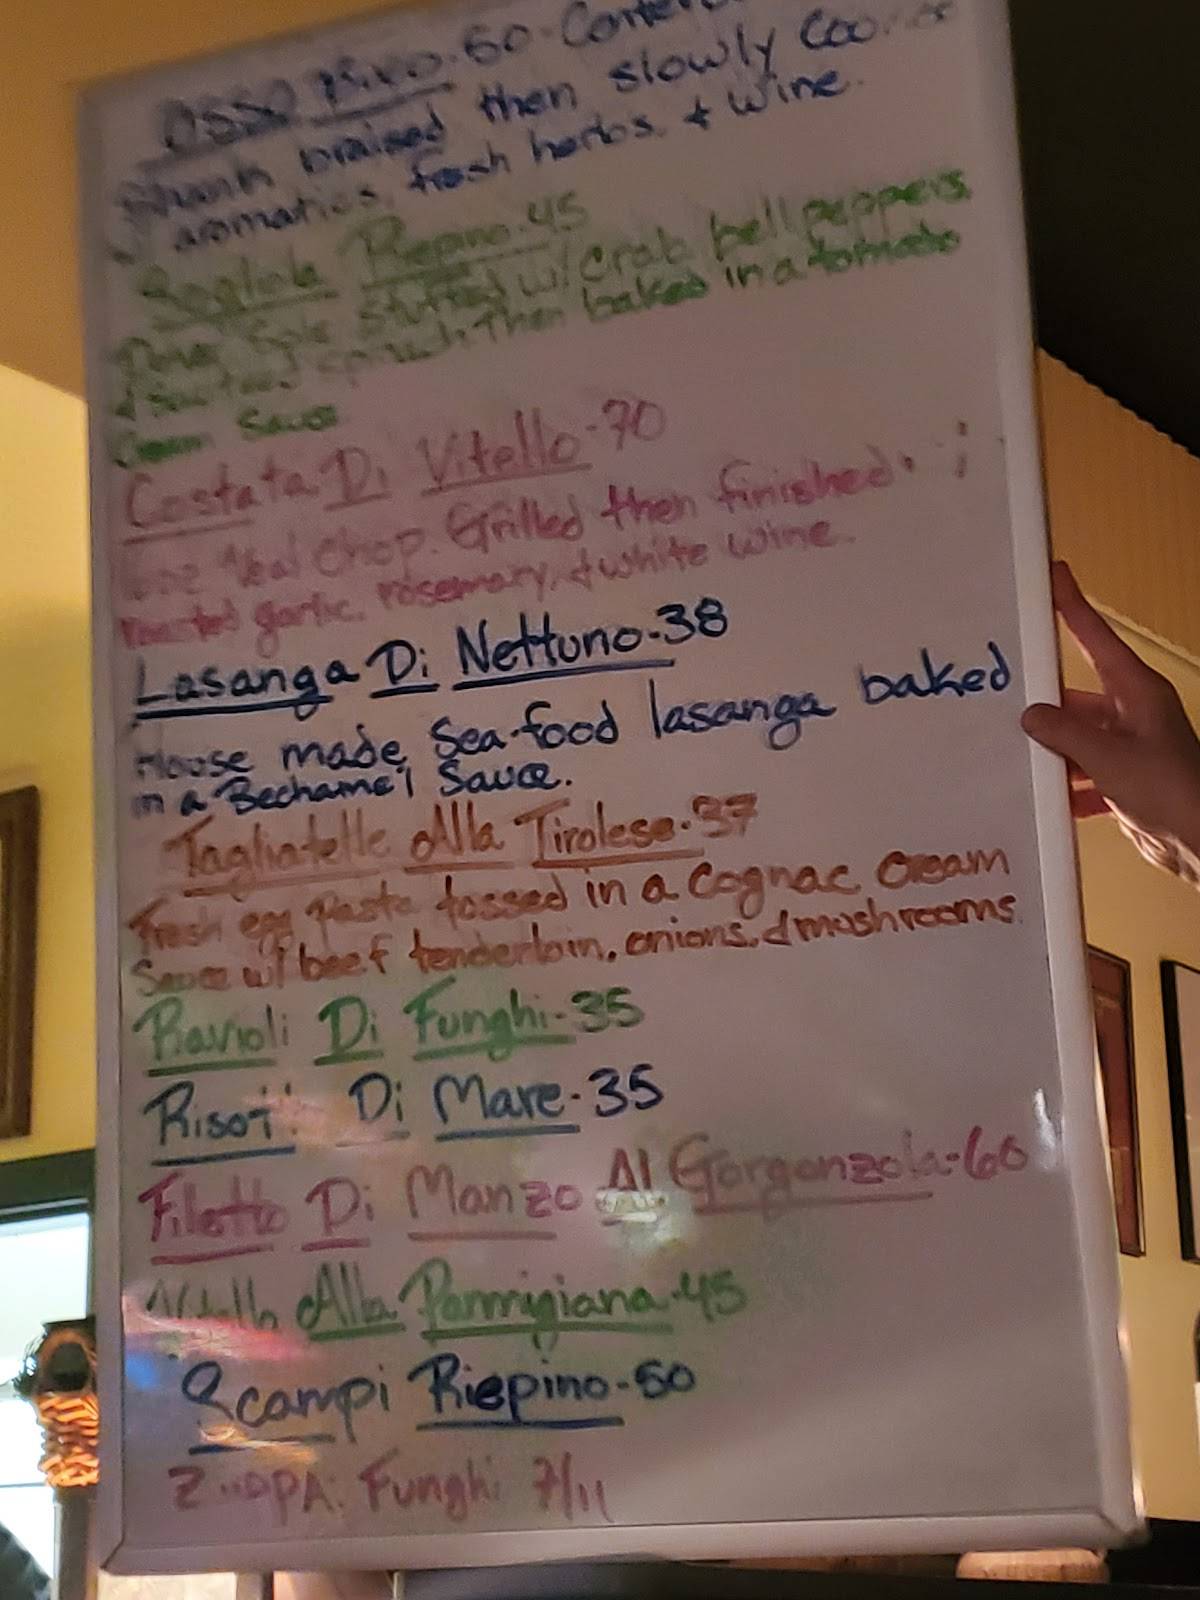 OSSO Buco. 60. Center
Shank braised then slowly cooked
aromatics, fresh herbs. & wine.
Sogliola Riepino. 45
Dover Sole stuffed w/ crab bell peppers
& sauteed spinach. Then baked in a tomato
Cream Sauce
Costata Di Vitello - 70
Veal Chop. Grilled then finished
roasted garlic, rosemary, & white wine.
Lasanga Di Nettuno. 38
House made Sea-food lasanga baked
in a Bechamel Sauce.
Tagliatelle Alla Tirolese. 37
Fresh egg Pasta tossed in a Cognac Cream
Sauce w/ beef tenderloin, onions, & mushrooms.
Ravioli Di Funghi - 35
Di Mare - 35
Filetto Di Manzo Al Gorgonzola - 60
Vitello Alla Parmigiana - 45
Scampi Riepino - 50
Funghi 7/11